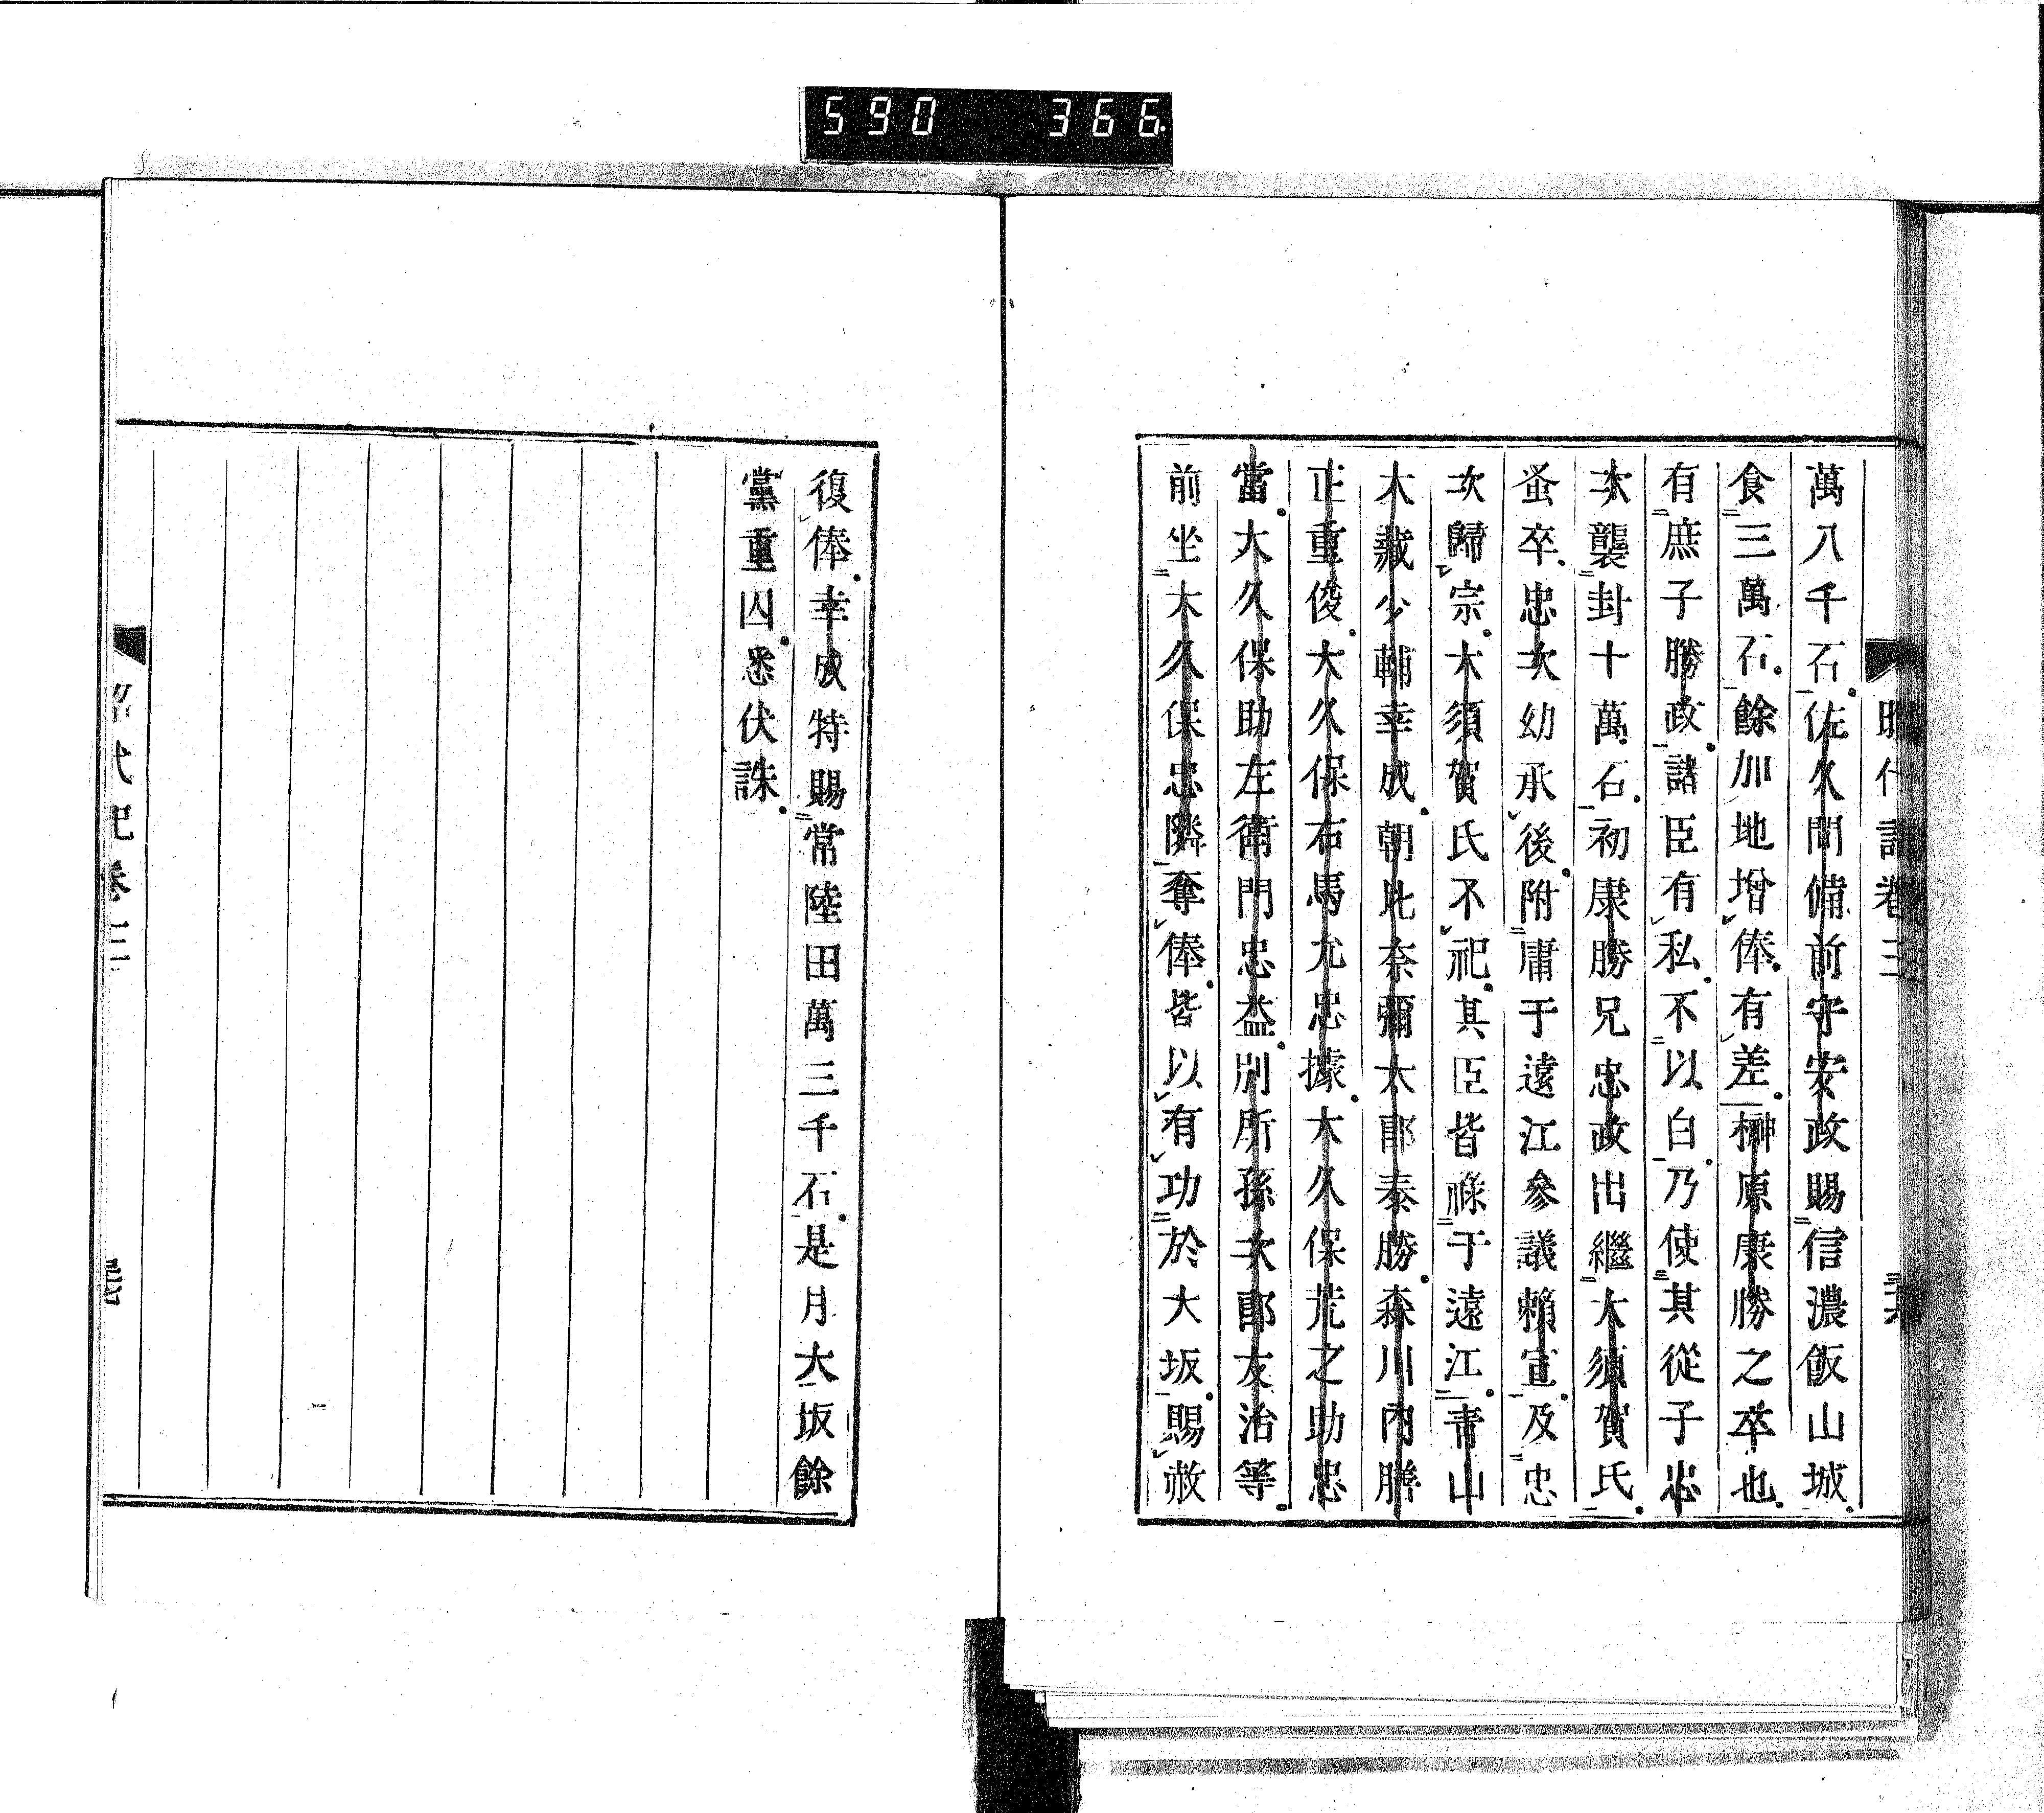 590 366
昭代記卷三
萬八千石佐久間備前守安政賜信濃飯山城
食三萬石餘加地增俸有差榊原康勝之卒也
有庶子勝政諸臣有私不以白乃使其從子忠
次襲封十萬石初康勝兄忠政出繼大須賀氏
蚤卒忠次幼承後附庸于遠江參議賴宣及忠
次歸宗大須賀氏不祀其臣皆祿于遠江青山
大藏少輔幸成朝比奈彌太郎泰勝森川內膳
正重俊大久保右馬允忠據大久保荒之助忠
當大久保助左衛門忠益別所孫次郎友治等
前坐大久保忠隣奪俸皆以有功於大坂賜赦
復俸幸成特賜常陸田萬三千石是月大坂餘
黨重囚悉伏誅
昭代記卷三